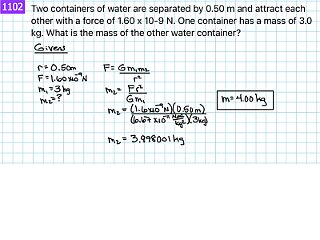 1102 Two containers of water are separated by 0.50 m and attract each
other with a force of 1.60 x 10-9 N. One container has a mass of 3.0
kg. What is the mass of the other water container?
Givens
r = 0.50m
F = 1.60x10⁻⁹N
m₁ = 3kg
m₂ = ?
F = Gm₁m₂ / r²
m₂ = Fr² / Gm₁
m₂ = (1.6x10⁻⁹N)(0.50m) / (6.67 x10⁻¹¹ )(3kg)
m₂ = 3.998001kg
m = 4.00kg